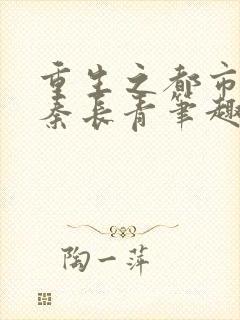 重生之都市
秦长青笔趣
陶一萍